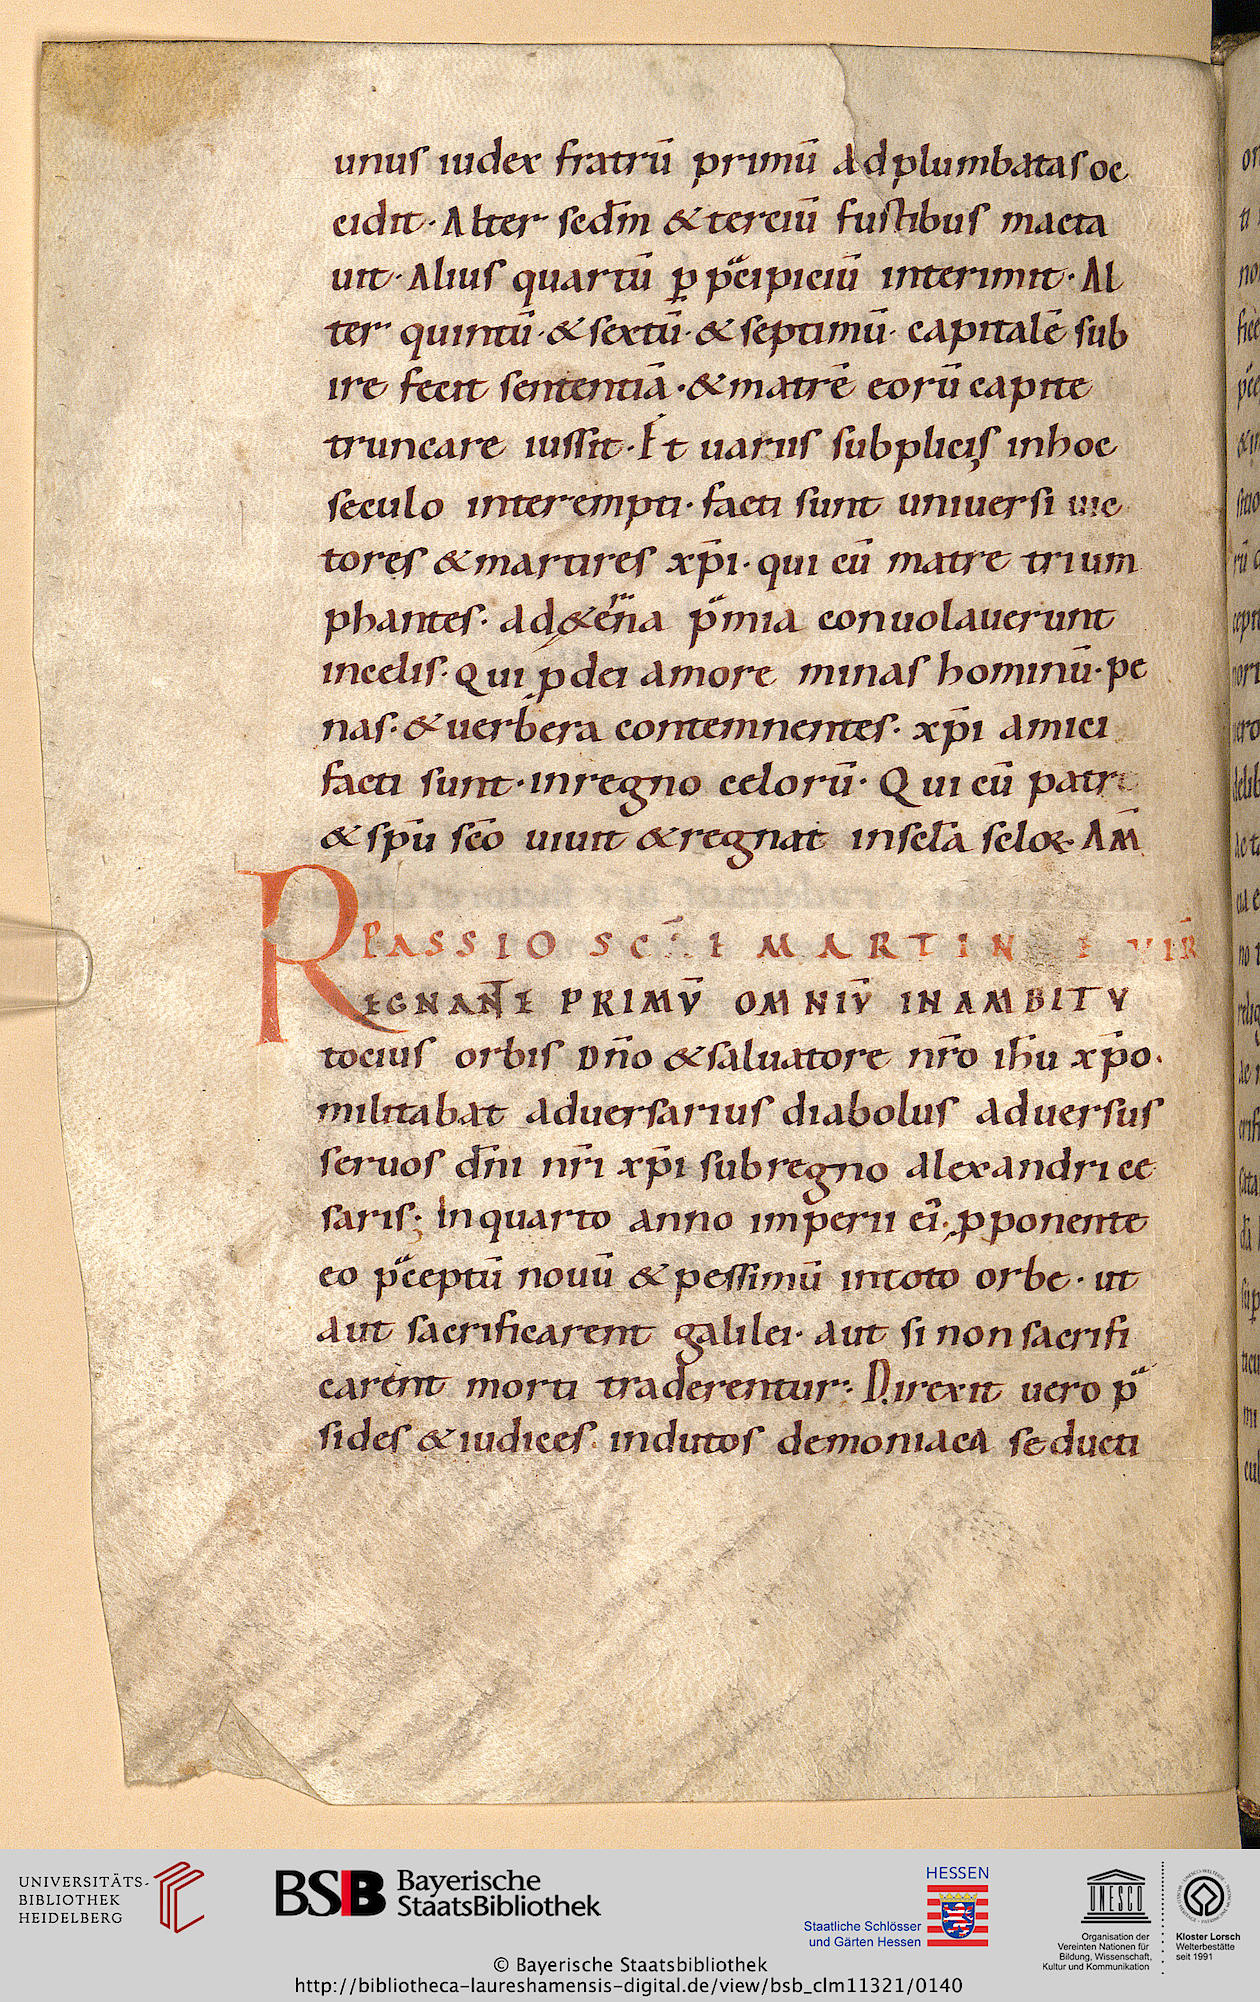 unus iudex fratrū primū adplumbatas oc
cidit · Alter scđm &terciū fustibus macta
uit · Alius quartū p p̄cipiciū interimit · Al
ter quintū · &sextū · &septimū · capitalē sub
ire fecit sententiā · &matrē eorū capite
truncare iussit · Et uariis subpliciis inhoc
seculo interempti · facti sunt uniuersi uic
tores &martires xp̄i · qui cū matre trium
phantes · ad p̄mia conuolauerunt
incelis · Qui p dei amore minas hominū · pe
nas · &uerbera contemnentes · xp̄i amici
facti sunt · inregno celorū · Qui cū patre
&sp̄u sc̄o uiuit &regnat inscl̄a sclo℞ · AM̄
PASSIO SC̄I MARTIN VIR
REGNANTE PRIMŪ OMNIŪ INAMBITV
tocius orbis dn̄o &saluatore nr̄o ih̄u xp̄o ·
militabat aduersarius diabolus aduersus
seruos dn̄i nr̄i xp̄i subregno alexandri ce
saris ; Inquarto anno imperii ei ; pponente
eo p̄ceptū nouū &pessimū intoto orbe · ut
aut sacrificarent galilei · aut si non sacrifi
carent morti traderentur · Direxit uero p̄
sides &iudices indutos demoniaca seducti
UNIVERSITÄTS-
BIBLIOTHEK
HEIDELBERG
BSB Bayerische
StaatsBibliothek
HESSEN
Staatliche Schlösser
und Gärten Hessen
UNESCO
Organisation der
Vereinten Nationen für
Bildung, Wissenschaft,
Kultur und Kommunikation
Kloster Lorsch
Welterbestätte
seit 1991
© Bayerische Staatsbibliothek
http://bibliotheca-laureshamensis-digital.de/view/bsb_clm11321/0140